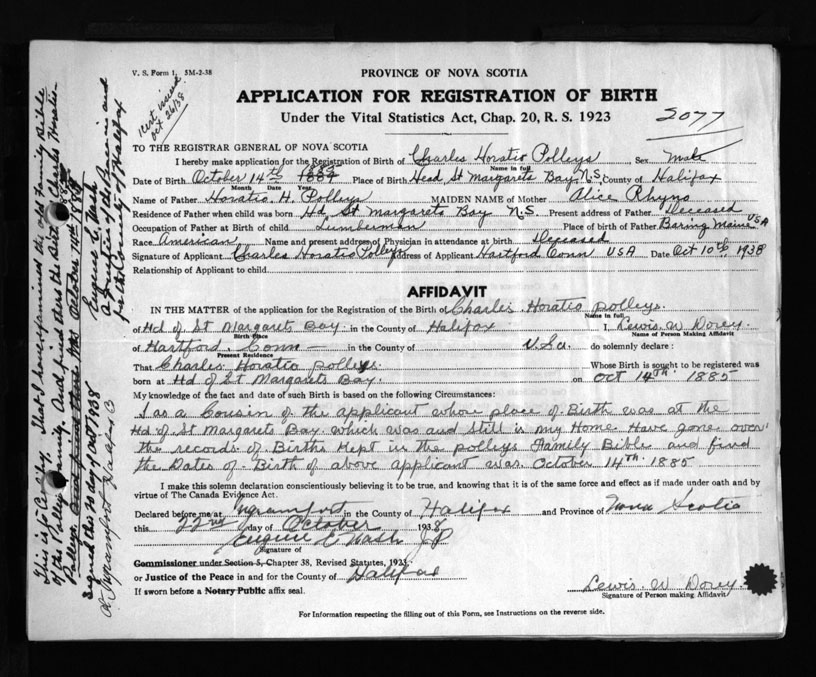 V. S. Form 1. 5M-2-38
PROVINCE OF NOVA SCOTIA
APPLICATION FOR REGISTRATION OF BIRTH
Under the Vital Statistics Act, Chap. 20, R. S. 1923
2077
Cert issued
Oct 26/38
TO THE REGISTRAR GENERAL OF NOVA SCOTIA
I hereby make application for the Registration of Birth of Charles Horatio Polleys Sex Male
Name in full
Date of Birth October 14th 1885 Place of Birth Head St Margarets Bay N.S. County of Halifax
Month Date Year
Name of Father Horatio H. Polleys MAIDEN NAME of Mother Alice Rhyno
Residence of Father when child was born Hd. St Margarets Bay N.S. Present address of Father Deceased
Occupation of Father at Birth of child Lumberman Place of birth of Father Baring Maine USA
Race American Name and present address of Physician in attendance at birth Deceased
Signature of Applicant Charles Horatio Polleys Address of Applicant Hartford Conn USA Date Oct 10th 1938
Relationship of Applicant to child
AFFIDAVIT
IN THE MATTER of the application for the Registration of the Birth of Charles Horatio polleys.
Name in full
of Hd of St Margarets Bay. in the County of Halifax I, Lewis W Dorey.
Birth Place Name of Person Making Affidavit
of Hartford. Conn – in the County of U.S.a do solemnly declare:
Present Residence
That Charles Horatio polleys. Whose Birth is sought to be registered was
born at Hd of St Margarets Bay. on Oct 14th 1885
My knowledge of the fact and date of such Birth is based on the following Circumstances:
I as a Cousin of the applicant whose place of Birth was at the
Hd of St Margarets Bay which was and still is my Home Have gone over
the records of Births Kept in the polleys Family Bible and find
the Dates of Birth of above applicant was October 14th 1885
I make this solemn declaration conscientiously believing it to be true, and knowing that it is of the same force and effect as if made under oath and by
virtue of The Canada Evidence Act.
Declared before me at Ingramport in the County of Halifax and Province of Nova Scotia
this 22nd day of October 1938
Eugene E Nash JP
Signature of
Commissioner under Section 5, Chapter 38, Revised Statutes, 1923.
or Justice of the Peace in and for the County of Halifax
If sworn before a Notary Public affix seal.
Lewis. W Dorey
Signature of Person making Affidavit
For Information respecting the filling out of this Form, see Instructions on the reverse side.
This is to Certify. That I have examined the old Family Bible
of the Polleys Family. And find there the Birth of Charles Horatio
Polleys October 14th 1885
Signed this 22 day of Oct 1938
at Ingramport Halifax C
Eugene E. Nash
A Justice of the Peace in and
for the County of Halifax